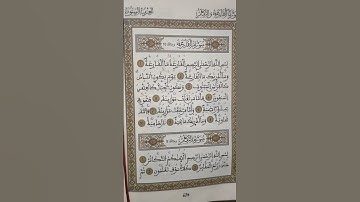 سورة القارعة
بسم الله الرحمن الرحيم القارعة ما القارعة
وما أدريك ما القارعة يوم يكون الناس
كالفراش المبثوث وتكون الجبال كالعهن
المنفوش فأما من ثقلت موازينه فهو في
عيشة راضية وأما من خفت موازينه فأمه
هاوية وما أدريك ماهيه نار حامية
سورة التكاثر
بسم الله الرحمن الرحيم ألهيكم التكاثر
حتى زرتم المقابر كلا سوف تعلمون ثم